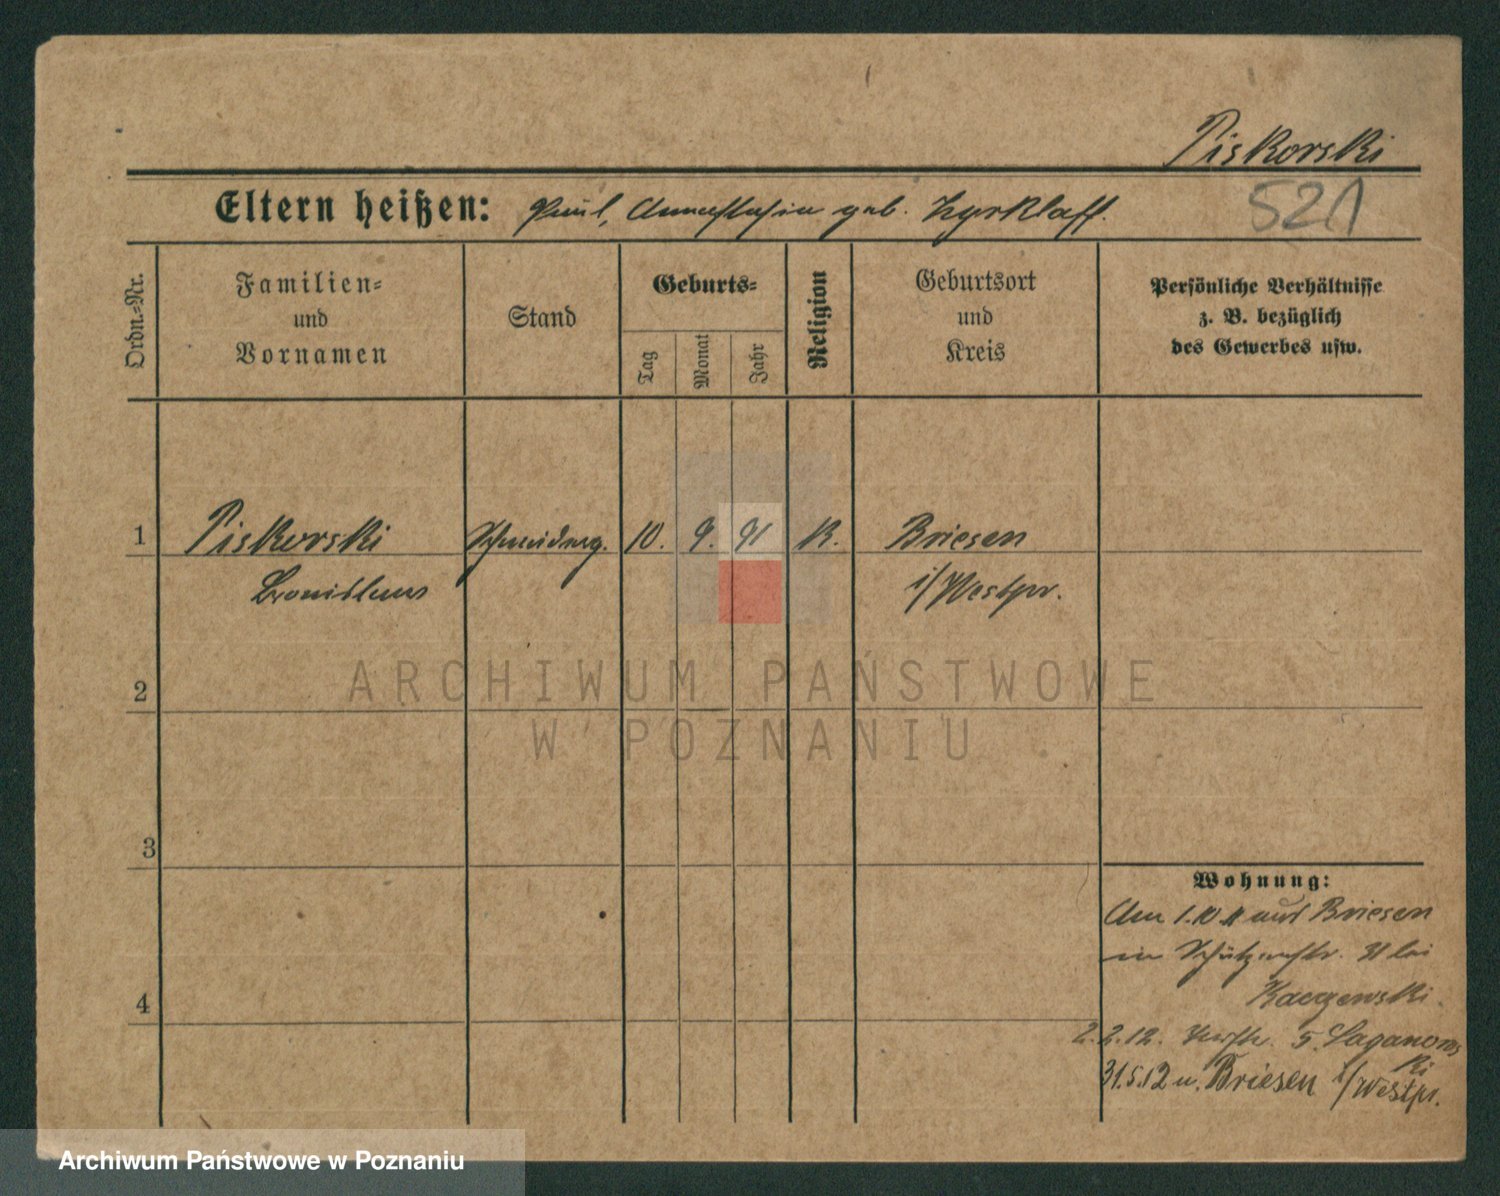 Piskorski
Eltern heißen: Paul, Annastasia geb. Zyrklaff.
521
Ordn.-Nr.
Familien-
und
Vornamen
Stand
Geburts-
Tag
Monat
Jahr
Religion
Geburtsort
und
Kreis
Persönliche Verhältnisse
z. B. bezüglich
des Gewerbes usw.
1 Piskorski Schneiderg. 10. 9. 91 K. Briesen
Bronislaus i/Westpr.
ARCHIWUM PAŃSTWOWE
W POZNANIU
2
3
4
Wohnung:
Am 1.10.11 aus Briesen
in Schützenstr. 31 bei
Kaczewski.
2.2.12. 5. Laganows
ki
31.5.12 n. Briesen i/Westpr.
Archiwum Państwowe w Poznaniu